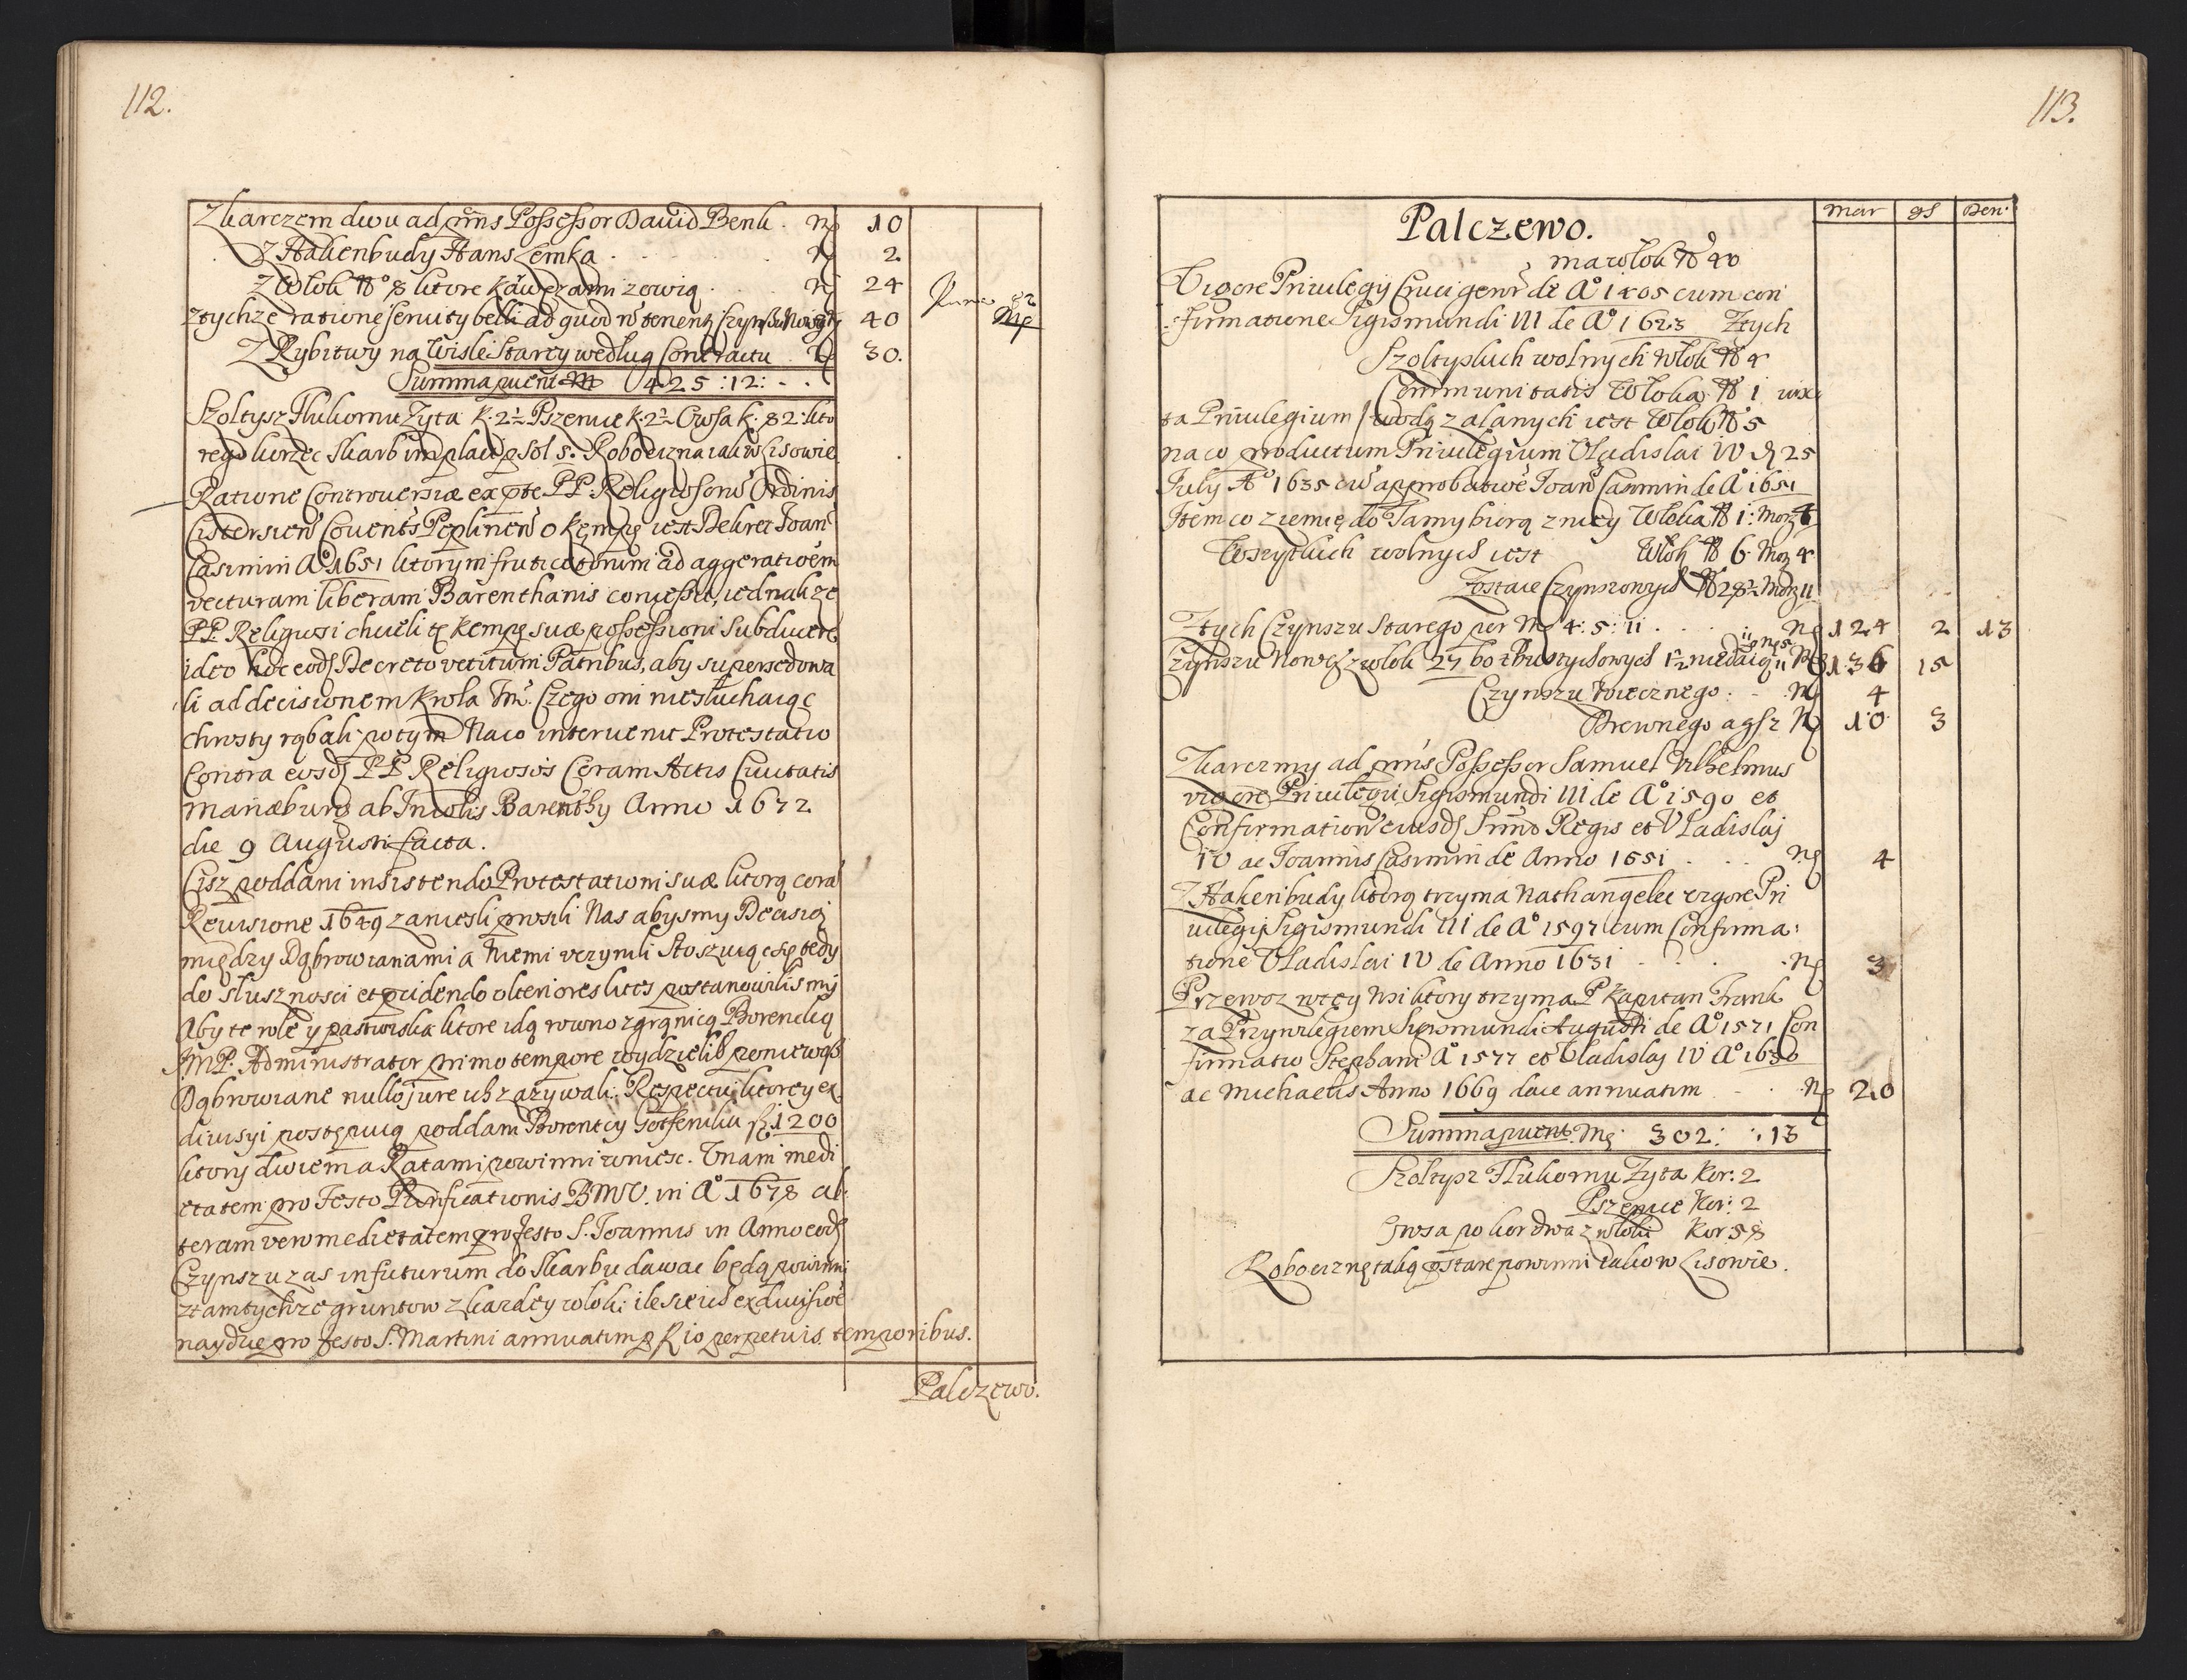 112.
Z karczem dwu ad p̃ns Possessor Dawid Benk . 10
Z Hakenbudy Hans Lemka . 2
Z Włok No 8 ktore Kawczami zowią . 24
Z tychże ratione servuty belli ad quod 40
Z Rybitwy na Wisle Starey według Contractu . 30.
Summa 425 : 12 : - .
Szołtysz Tłukomu Zyta K. 2½ Pszenice K. 2½ Owsa K. 82 kto
rego korzec Skarb im płaci p sol 5. Robocizna iak w Lisowie
Ratione Controversiæ ex p̃te PP. Religiosorũ Ordinis
Cistersień Covents Peplineñ o Kempę iest Dekret Joañ
Casimiri Ao 1651 ktorym fruticetorum ad aggeratioēm
vecturam liberam Barenthanis concessit, iednakże
PP. Religiosi chcieli tę Kempę suæ possessioni subducere
ideo hoc eod Decreto vetitum Patribus, aby supersedowa
li ad decisionem Krola Jm̃. Czego oni niesłuchaiąc
chrosty rąbali potym Naco intervenit Protestatio
Contra eosd PP Religiosos Coram Actis Civitatis
Mariæburg ab Incolis Barenthy Anno 1672
die 9 Augusti facta.
Cisz poddani insistendo Protestationi suæ ktorą corã
Revisione 1649 zaniesli prosili Nas abysmy Decisią
między Dąbrowianami a Niemi uczynili Stoszuiąc się tedy
do słusznosci et p̃cidendo ulteriores lites postanowilismy
Aby te role y pastwiska ktore idą rowno z grąnicą Borencką
JMP. Administrator primo tempore wydzielił, poniewasz
Dąbrowiane nullo jure ich zażywali. Respectu ktorey ex
divisyi postępuią poddani Borentcy Gotfeniku fl 1200
ktory dwiema Ratami powinni wniesc. Unam medi
etatem pro Festo Purificationis BMV. in Ao 1678 al:
teram vero medietatem pro festo S. Joannis in Anno eod
Czynszu zas in futurum do Skarbu dawac będą powinni
z tamtychże gruntow z kazdey włoki ile sie ich ex divisioē
naydue pro festo S. Martini annuatim p fl 10 perpetuis temporibus.
Palczewo.
113.
Mar gs Den
Palczewo.
ma włok No 40
Vigore Privilegÿ Crucigeror̃ de Ao 1405 cum con
firmatione Sigismundi III de Ao 1623 Z tych
Szołtyskich wolnych Włok No 4
Communitatis Włoka No 1 iux
ta Privilegium / wodą zalanych iest Włok No 5
na co productum Privilegium Vladislai IV D 25
July Ao 1635 cũ approbatioē Joañ Casimiri de Ao 1651
Item co ziemię do Tamy biorą z niey Włoka No 1 : Morg 4
Wszytkich wolnych iest Włok No 6. Morg 4
Zostaie Czynszowych No 28½ Morg 11
Z tych Czynszu Starego per Mg 4 : 5 : 11 . 124 2 13
Czynszu Noweg z włok 27 bo z Pustych owych 1½ niedaią 136 15
Czynszu Wiecznego . 4
Drewnego a gs 2 10 3
Z karczmy ad p̃ns Possessor Samuel Wilhelmus
vigore Privilegii Sigismundi III de Ao 1590 et
Confirmationū eiusd Smo Regis et Vladislaj
IV ac Joannis Casimiri de Anno 1651 . 4
Z Hakenbudy ktorą trzyma Nathangelee vigore Pri
vilegÿ Sigismundi III de Ao 1597 cum Confirma:
tione Vladislai IV de Anno 1631 . 3
Przewoz w tey Wsi ktory trzyma P Kapitan Frank
za Przywilegiem Sigismundi Augusti de Ao 1571 Con
firmatio Stephani Ao 1577 et Vladislaj IV Ao 1636
ac Michaelis Anno 1669 daie annuatim . 20
Summa 302 : : 13
Szołtysz Tłukomu Zyta Kor: 2
Pszenice Kor: 2
Owsa po kor dwa z włoki Kor 58
Robociznę taką ostare powinni iako w Lisowie.